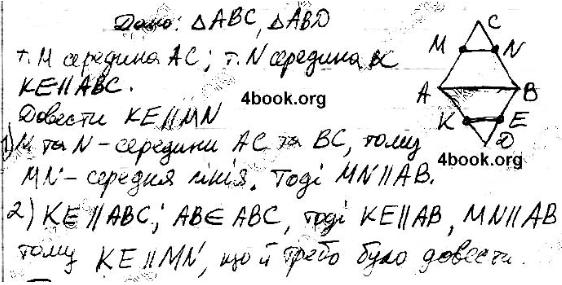 Дано: △ABC, △ABD
т. M середина AC; т. N середина BC
KE∥ABC.
Довести KE∥MN
1) M та N – середини AC та BC, тому
MN – середня лінія. Тоді MN∥AB.
2) KE∥ABC; AB∈ABC, тоді KE∥AB, MN∥AB
тому KE∥MN, що й требо було довести.
C
M N
A B
K E
D
4book.org
4book.org